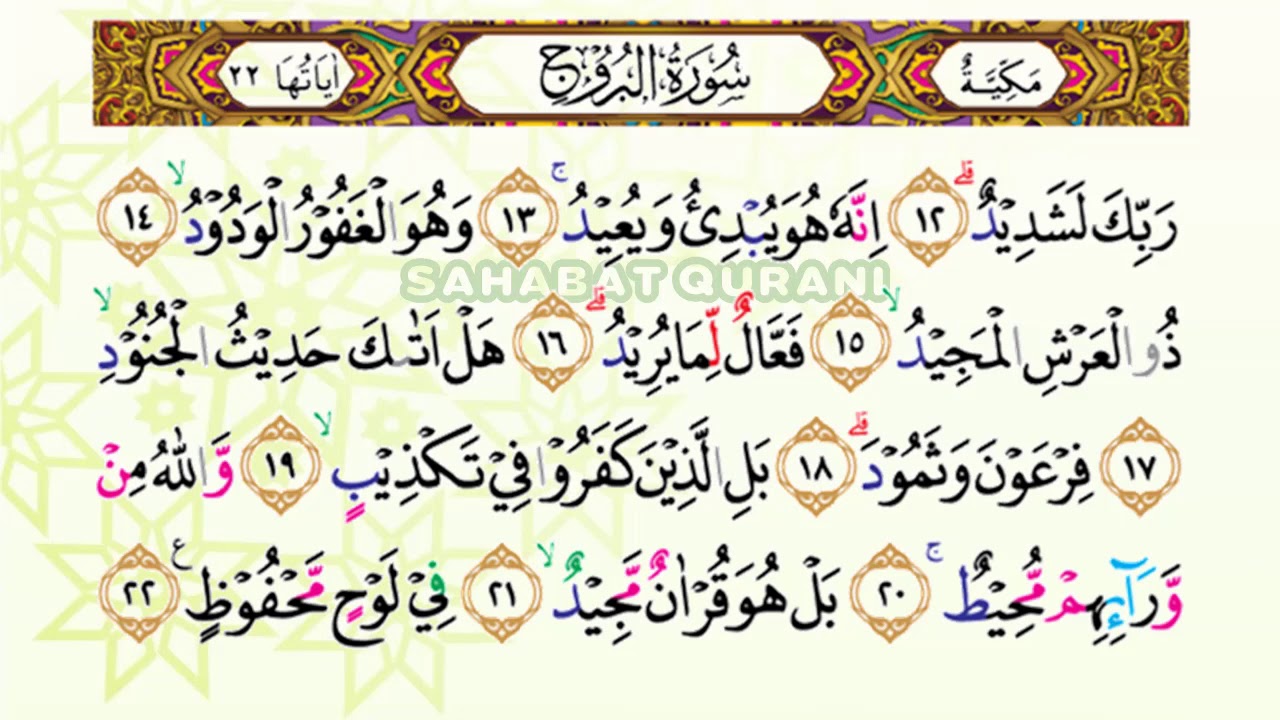 مَكِيَّةٌ سُوْرَةُ الْبُرُوْجِ اٰيَاتُهَا ٢٢
رَبِّكَ لَشَدِيْدٌۗ ١٢ اِنَّهٗ هُوَ يُبْدِئُ وَيُعِيْدُۚ ١٣ وَهُوَ الْغَفُوْرُ الْوَدُوْدُۙ ١٤
SAHABAT QURANI
ذُو الْعَرْشِ الْمَجِيْدُۙ ١٥ فَعَّالٌ لِّمَا يُرِيْدُۗ ١٦ هَلْ اَتٰىكَ حَدِيْثُ الْجُنُوْدِۙ
١٧ فِرْعَوْنَ وَثَمُوْدَۗ ١٨ بَلِ الَّذِيْنَ كَفَرُوْا فِيْ تَكْذِيْبٍۙ ١٩ وَّاللّٰهُ مِنْ
وَّرَاۤىِٕهِمْ مُّحِيْطٌۚ ٢٠ بَلْ هُوَ قُرْاٰنٌ مَّجِيْدٌۙ ٢١ فِيْ لَوْحٍ مَّحْفُوْظٍ ࣖ ٢٢